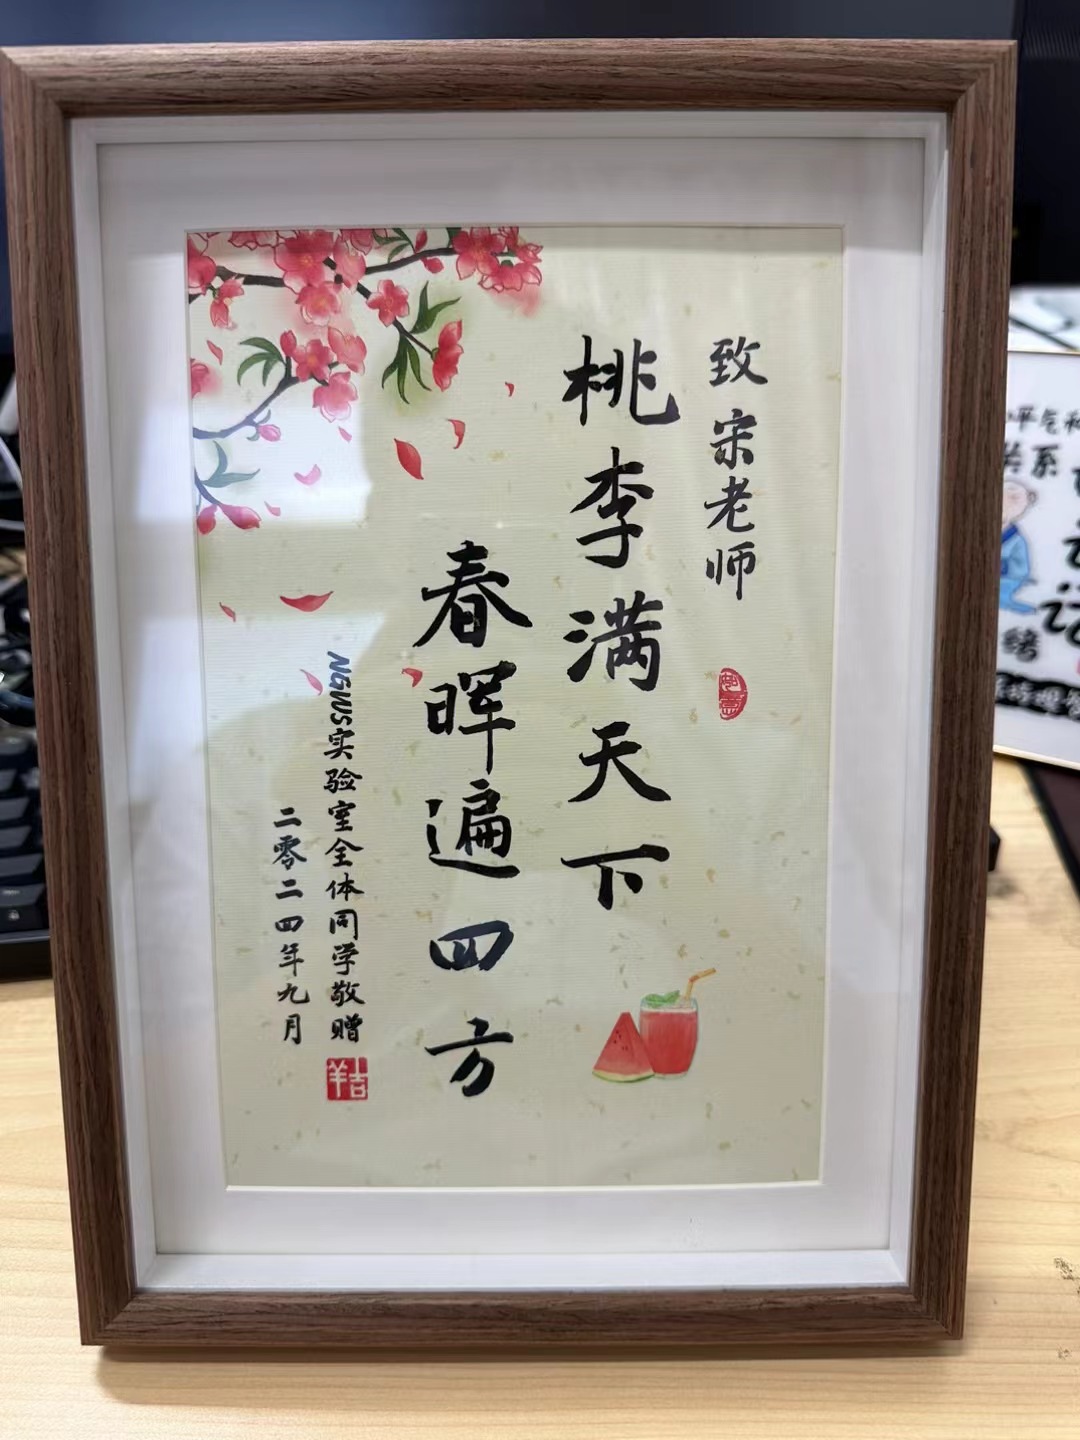 致宋老师
桃李满天下
春晖遍四方
NGWS实验室全体同学敬赠
二零二四年九月
吉羊
平气和
关系
绪